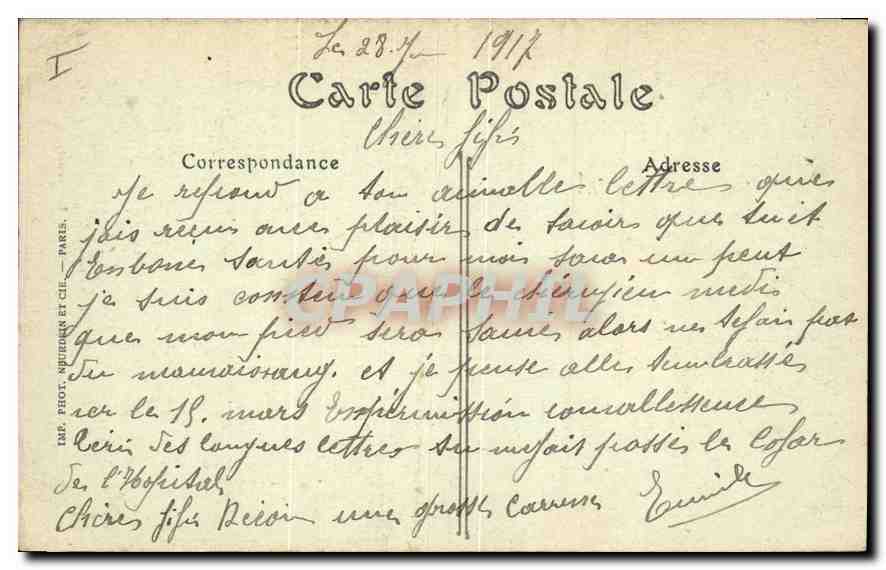 I
Le 28. 1917
Carte Postale
Chère fifis
Correspondance
Adresse
Je respond a ton aimable lettre que
jais recus avec plaisir de savoir que tu et
En bone santés pour moi sava un peut
je suis contend que le chirugien medis
que mon pied sera sauvés alors ne te fais pas
du mauvais sang. et je pense aller tembrassés
ver le 15. mars En permission convallessence
Écris des longues lettres tu me fait passés le Cafar
de l'Hospital
Chère fifis Recois une grosse Carresse Emile
IMP. PHOT. NEURDEIN ET CIE. — PARIS.
CPAPHIL